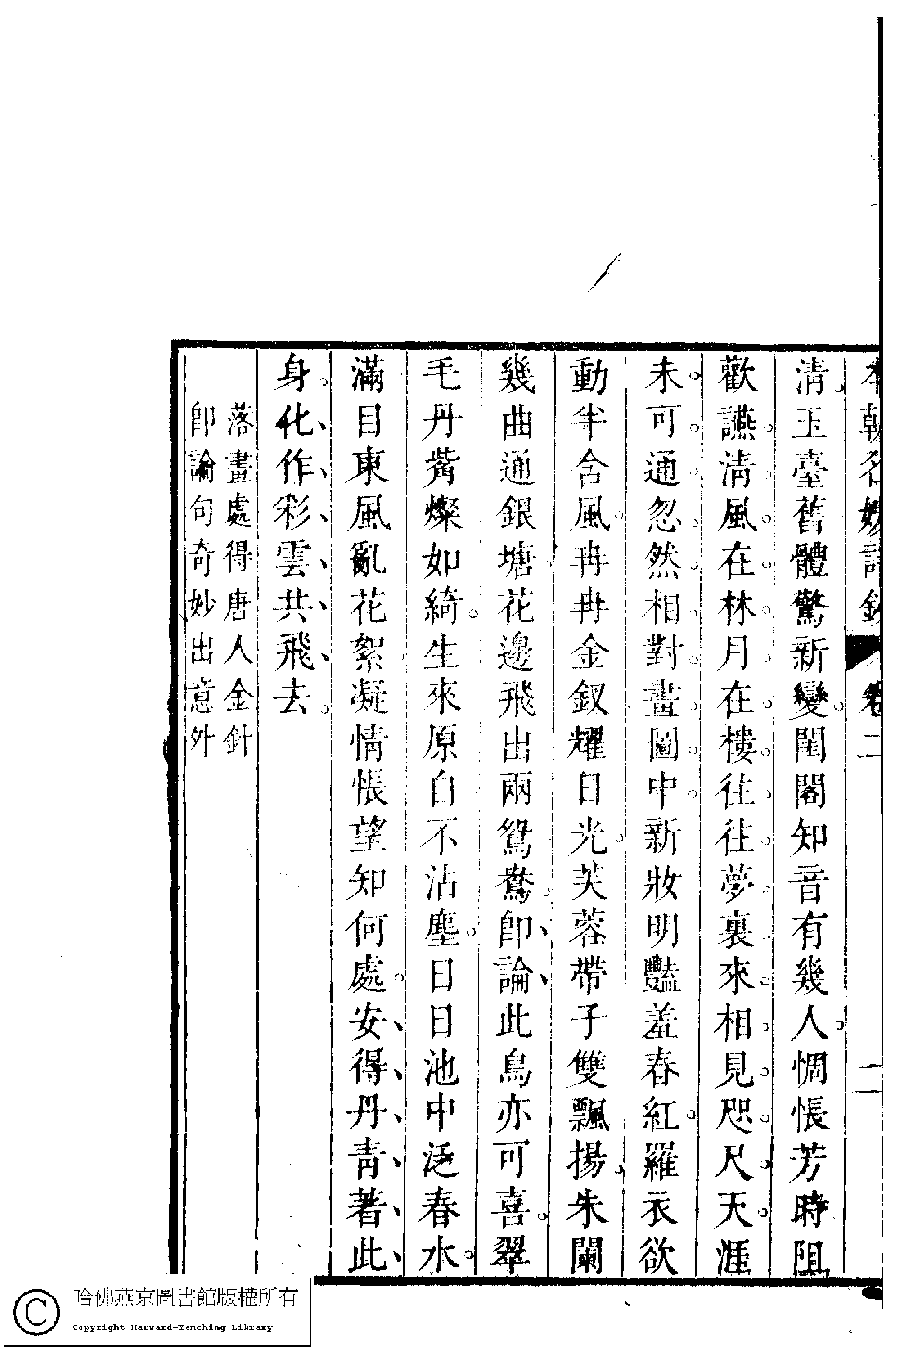 本朝名媛詩鈔 卷二 二
清玉臺舊體驚新變閨閣知音有幾人惆悵芳時阻
歡讌清風在林月在樓往往夢裏來相見咫尺天涯
未可通忽然相對畫圖中新妝明豔羞春紅羅衣欲
動半含風冉冉金釵耀日光芙蓉帶子雙飄揚朱闌
幾曲通銀塘花邊飛出兩鴛鴦卽論此鳥亦可喜翠
毛丹觜燦如綺生來原自不沾塵日日池中泛春水
滿目東風亂花絮凝情悵望知何處安得丹青著此
身化作彩雲共飛去
落畫處得唐人金針
卽論句奇妙出意外
哈佛燕京圖書館版權所有
Copyright Harvard-Yenching Library